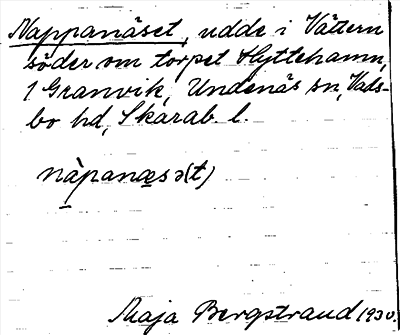 Nappanäset, udde i Vättern
söder om torpet Hyttehamn,
1 Granvik, Undenäs sn, Vads-
bo hd, Skarab. l.
nàpanæsə(t)
Maja Bergstrand 1930.